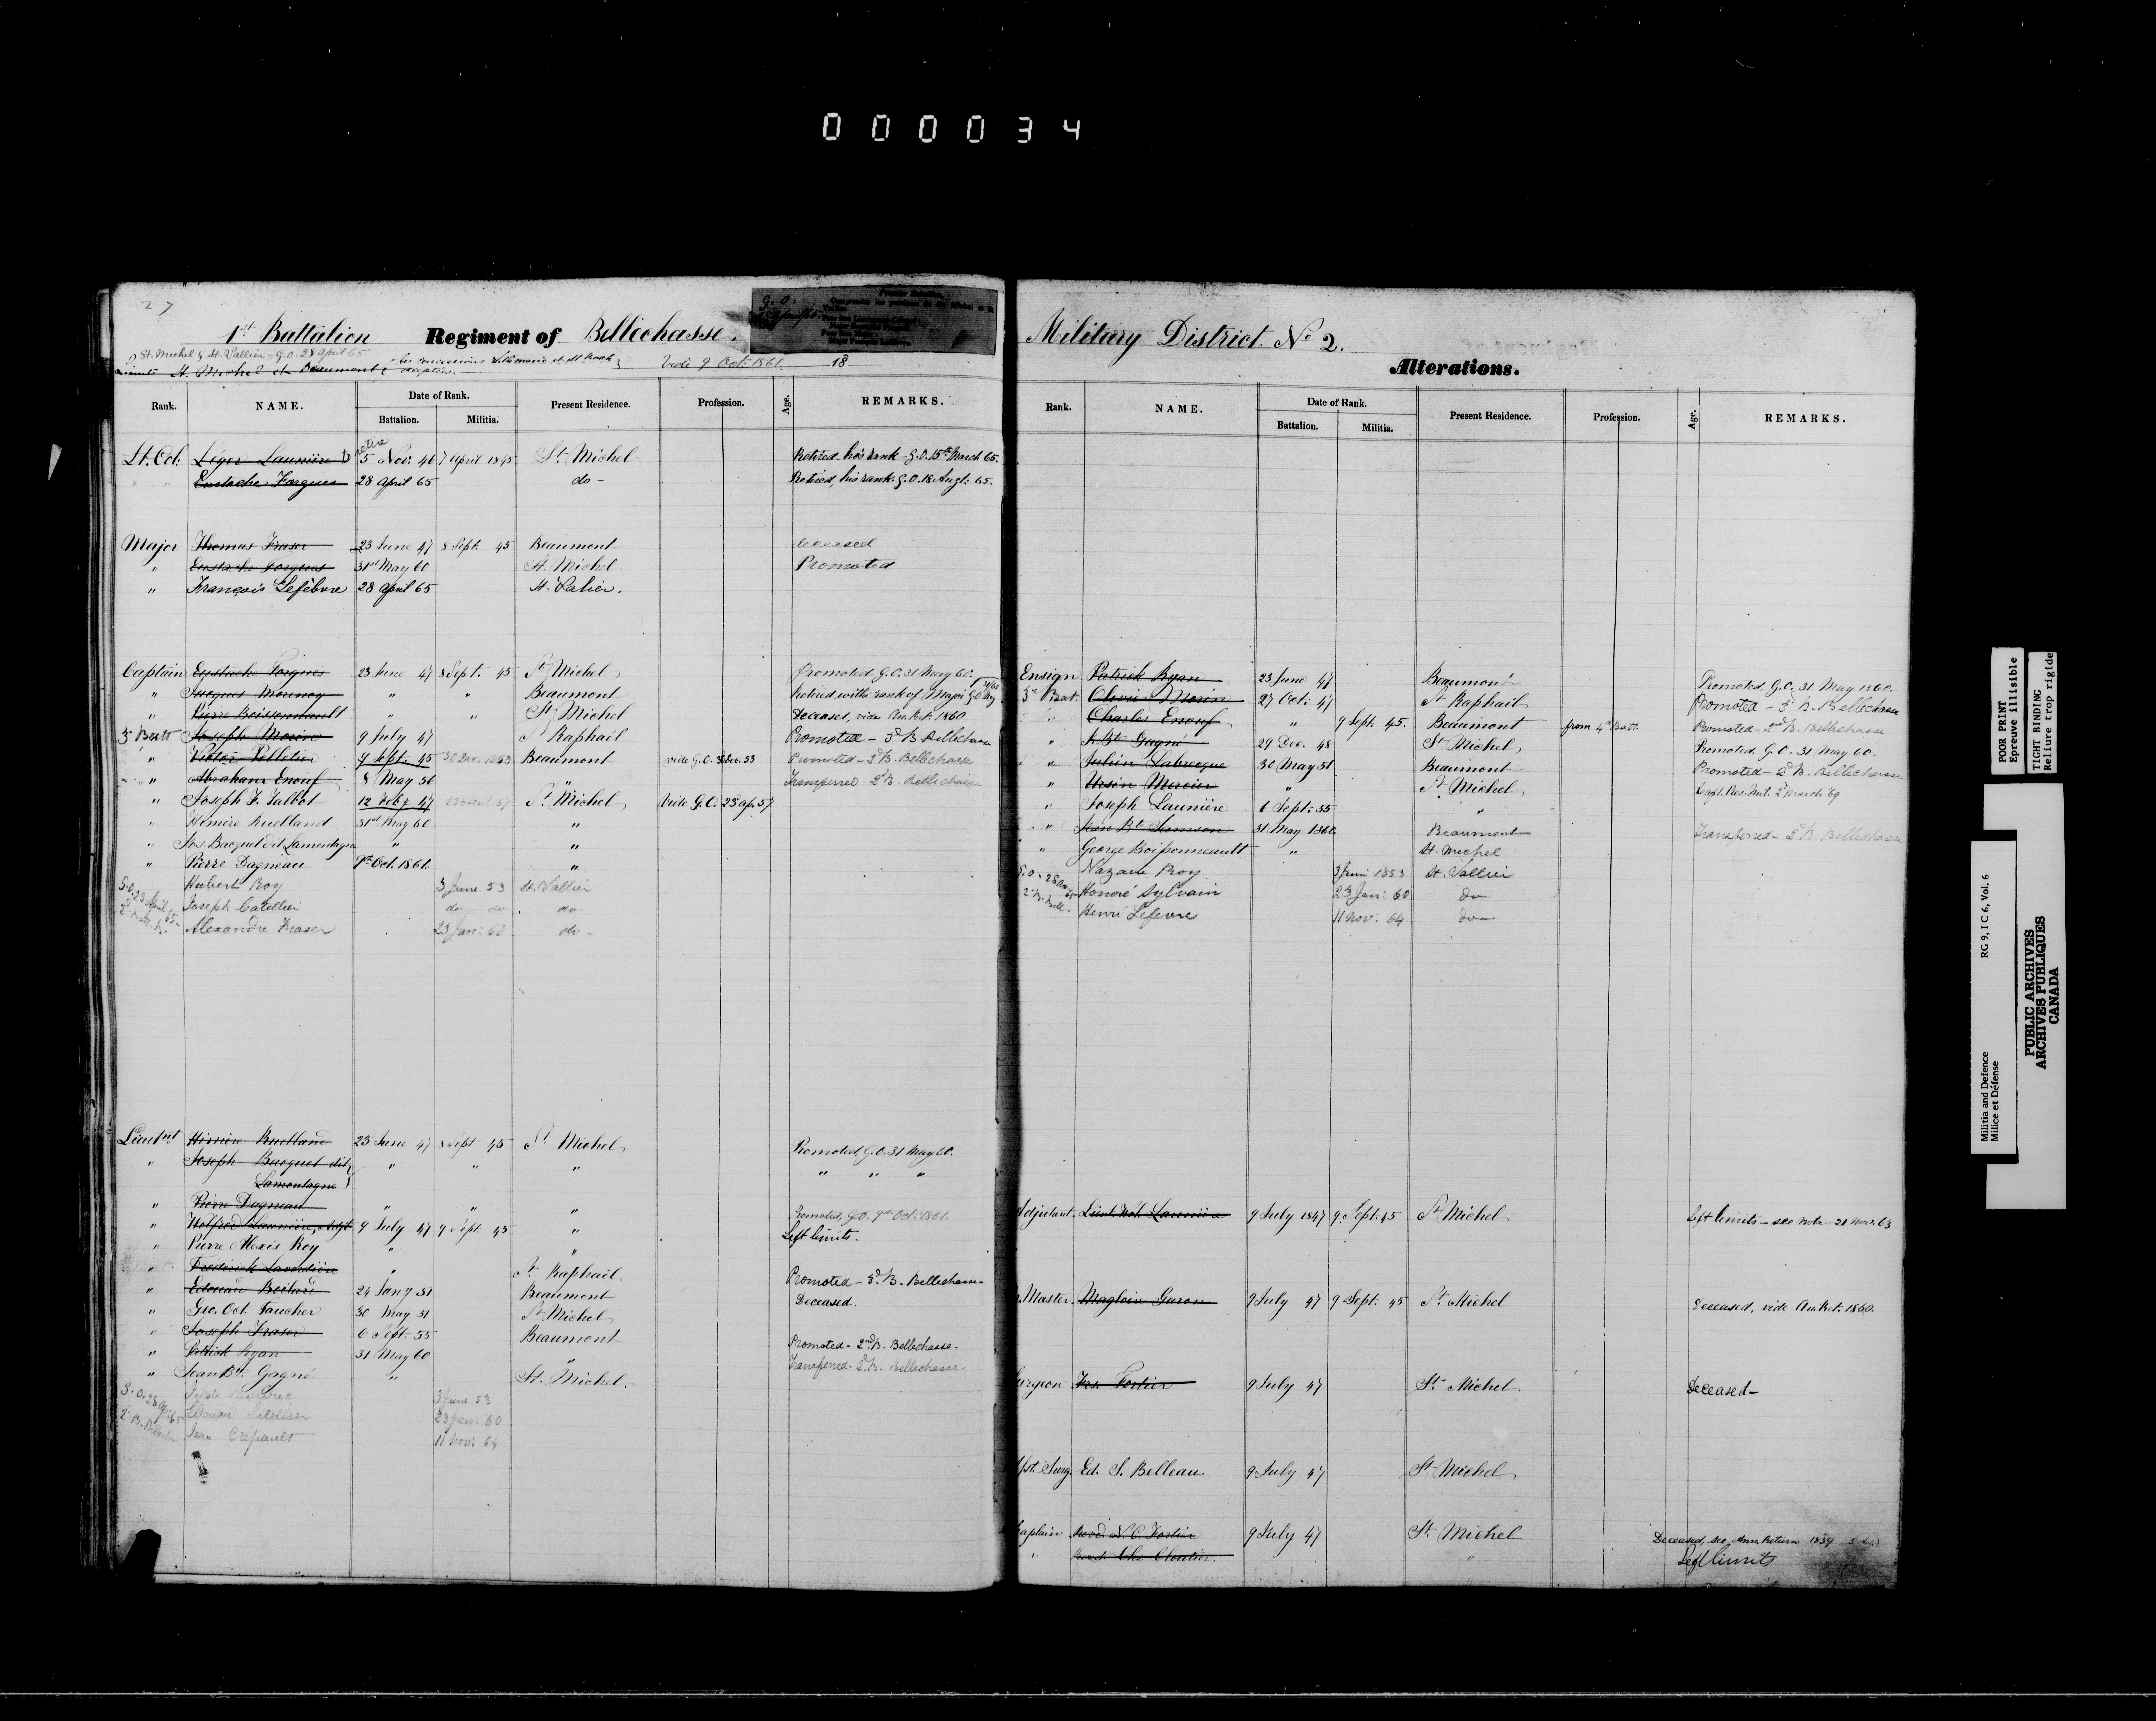 000034
27
1st Battalion Regiment of Bellechasse.
G. O.
St. Michel & St. Vallier - G.O. 28 April 65
St. Michel et Beaumont
vide 9 Oct. 1861. 18
Rank. NAME. Date of Rank. Present Residence. Profession. Age. REMARKS.
Battalion. Militia.
Lt. Col. Léger Launière 5 Nov. 46 7 April 1845 St. Michel Retired his rank - G.O. 15th March 65.
" Eustache Forgues 28 April 65 do - Retired, his rank. G.O. 18 Augt. 65.
Major Thomas Fraser 23 June 47 8 Sept. 45 Beaumont deceased
" Eustache Forgues 31st May 60 St. Michel Promoted
" François Lefebvre 28 April 65 St. Valier.
Captain Eustache Forgues 23 June 47 8 Sept. 45 St Michel Promoted G.O. 31 May 60.
" Jacques " " Beaumont Retired with rank of Major G.O.
" Pierre Boissonnault " " St. Michel Deceased, vide An. Ret. 1860
3 Batt Joseph Morin 9 July 47 St Raphaël Promoted - 3d B. Bellechasse
" Victor Pelletier 9 Sept. 45 30 Dec. 1853 Beaumont vide G.O. 30 Dec. 53 Promoted - 2d B. Bellechasse
" Abraham Enouf 8 May 56 Transferred 2d B. Bellechasse
" Joseph F. Talbot 12 Feby 47 St. Michel vide G.O. 23 Ap. 57
" Ruelland 31st May 60 "
" Jos. Bacquet dit Lamontagne " "
" Pierre Dagneau 9th Oct. 1861. "
G.O. 28 April 65 Hubert Roy 3 June 53 St. Vallier
Joseph Catellier do do do
Alexandre Fraser 23 Jan: 60 do -
Lieutnt Ruelland 23 June 47 8 Sept 45 St. Michel Promoted, G.O. 31 May 60.
" Joseph Bacquet dit Lamontagne " " " " " "
" Pierre Dagneau " " " Promoted, G.O. 9th Oct. 1861.
" Wolfred Launière, Adjt 9 July 47 9 Sept. 45 " Left limits.
" Pierre Alexis Roy " "
" Frederick " St. Raphaël Promoted - 3d B. Bellechasse -
" Edouard 24 Jany. 51 Beaumont Deceased.
" Geo. Oct. Faucher 30 May 51 St Michel
" Joseph Fraser 6 Sept. 55 Beaumont Promoted - 2nd B. Bellechasse -
" Patrick Ryan 31 May 60 " Transferred - 2d B. Bellechasse -
" Jean Bte. Gagné " St. Michel.
3 June 53
23 Jan: 60
Jean Crépault 11 Nov: 64
Military District No 2.
Alterations.
Rank. NAME. Date of Rank. Present Residence. Profession. Age. REMARKS.
Battalion. Militia.
Ensign Patrick Ryan 23 June 47 Beaumont Promoted, G.O. 31 May 1860.
3d Bat. Olivier Morin 27 Oct. 47 St Raphaël Promoted - 3d B. Bellechasse
" Charles Enouf " 9 Sept. 45. Beaumont from 4th Batt. Promoted - 2nd B. Bellechasse
" J. Bt Gagné 29 Dec. 48 St Michel Promoted. G.O. 31 May 60.
" Julien Labrecque 30 May 51 Beaumont Promoted - 2d B. Bellechasse
" Ursin Mercier " St. Michel Capt. Res. Mil. 2d March 69
" Joseph Launière 6 Sept. 55 "
" Jean Bt. Samson 31 May 1860 Beaumont Transferred - 2d B. Bellechasse
" George Boissonneault " St. Michel
G.O. 28 Ap. 65 Nazaire Roy 3 June 1853 St. Vallier
2d B. Bell. Honoré Sylvain 23 Jan: 60 do
Henri Lefevre 11 Nov: 64 do -
Adjutant. Lieut. Wol. Launière 9 July 1847 9 Sept. 45 St Michel Left limits - see note - 21 Nov. 63
Master. Magloire Garon 9 July 47 9 Sept. 45 St. Michel Deceased, vide An. Ret. 1860.
urgeon Frs. Fortier 9 July 47 St. Michel Deceased -
Asst. Surg. Ed. S. Belleau 9 July 47 St. Michel
haplain Revd. N. C. Fortier 9 July 47 St. Michel Deceased, see Ann. Return 1859
" Revd. Chs. Cloutier " Left limits
POOR PRINT
Epreuve illisible
TIGHT BINDING
Reliure trop rigide
Militia and Defence RG 9, I C 6, Vol. 6
Milice et Défense
PUBLIC ARCHIVES
ARCHIVES PUBLIQUES
CANADA